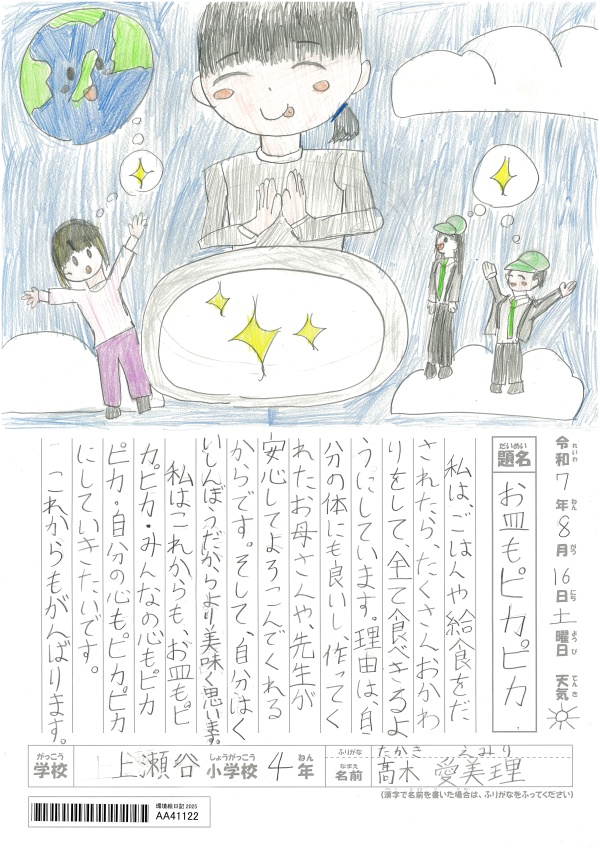 令和7年8月16日土曜日 天気
れいわ ねん がつ にち ようび てんき
だいめい
題名
お皿もピカピカ
私は、ごはんや給食をだ
されたら、たくさんおかわ
りをして、全て食べきるよ
うにしています。理由は、自
分の体にも良いし、作ってく
れたお母さんや、先生が
安心してよろこんでくれる
からです。そして、自分はく
いしんぼうだからより美味く思います。
私はこれからも、お皿もピ
カピカ・みんなの心もピカ
ピカ・自分の心もピカピカ
にしていきたいです。
これからもがんばります。
がっこう しょうがっこう ねん
学校 上瀬谷小学校 4年
ふりがな たかき えみり
なまえ
名前 髙木 愛美理
(漢字で名前を書いた場合は、ふりがなをふってください)
環境絵日記 2025
AA41122